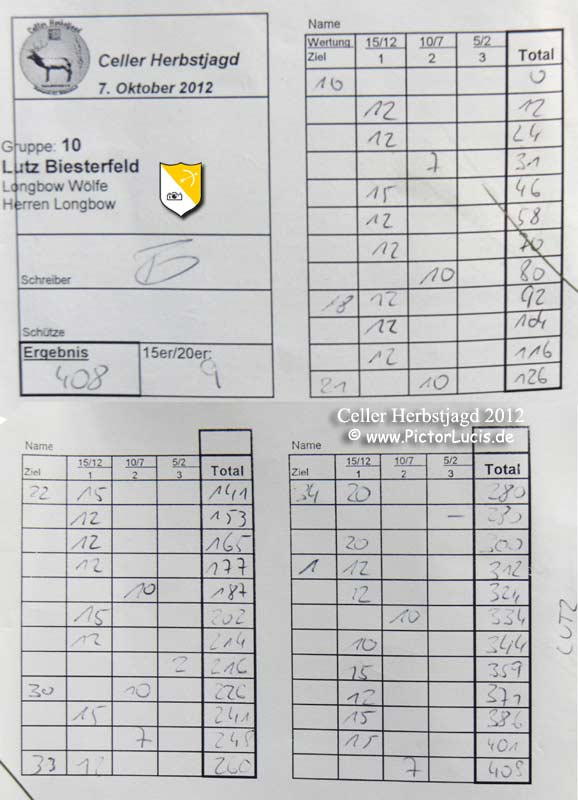 Celler Herbstjagd
Celler Herbstjagd
7. Oktober 2012
Gruppe: 10
Lutz Biesterfeld
Longbow Wölfe
Herren Longbow
Schreiber
Schütze
Ergebnis 15er/20er:
408 9
Name
Wertung 15/12 10/7 5/2 Total
Ziel 1 2 3
10 0
12 12
12 24
7 31
15 46
12 58
12 70
10 80
18 12 92
12 104
12 116
21 10 126
Celler Herbstjagd 2012
© www.PictorLucis.de
Name
15/12 10/7 5/2 Total
Ziel 1 2 3
22 15 141
12 153
12 165
12 177
10 187
15 202
12 214
2 216
30 10 226
15 241
7 248
33 12 260
Name
15/12 10/7 5/2 Total
Ziel 1 2 3
34 20 280
– 280
20 300
1 12 312
12 324
10 334
10 344
15 359
12 371
15 386
15 401
7 408
LUTZ